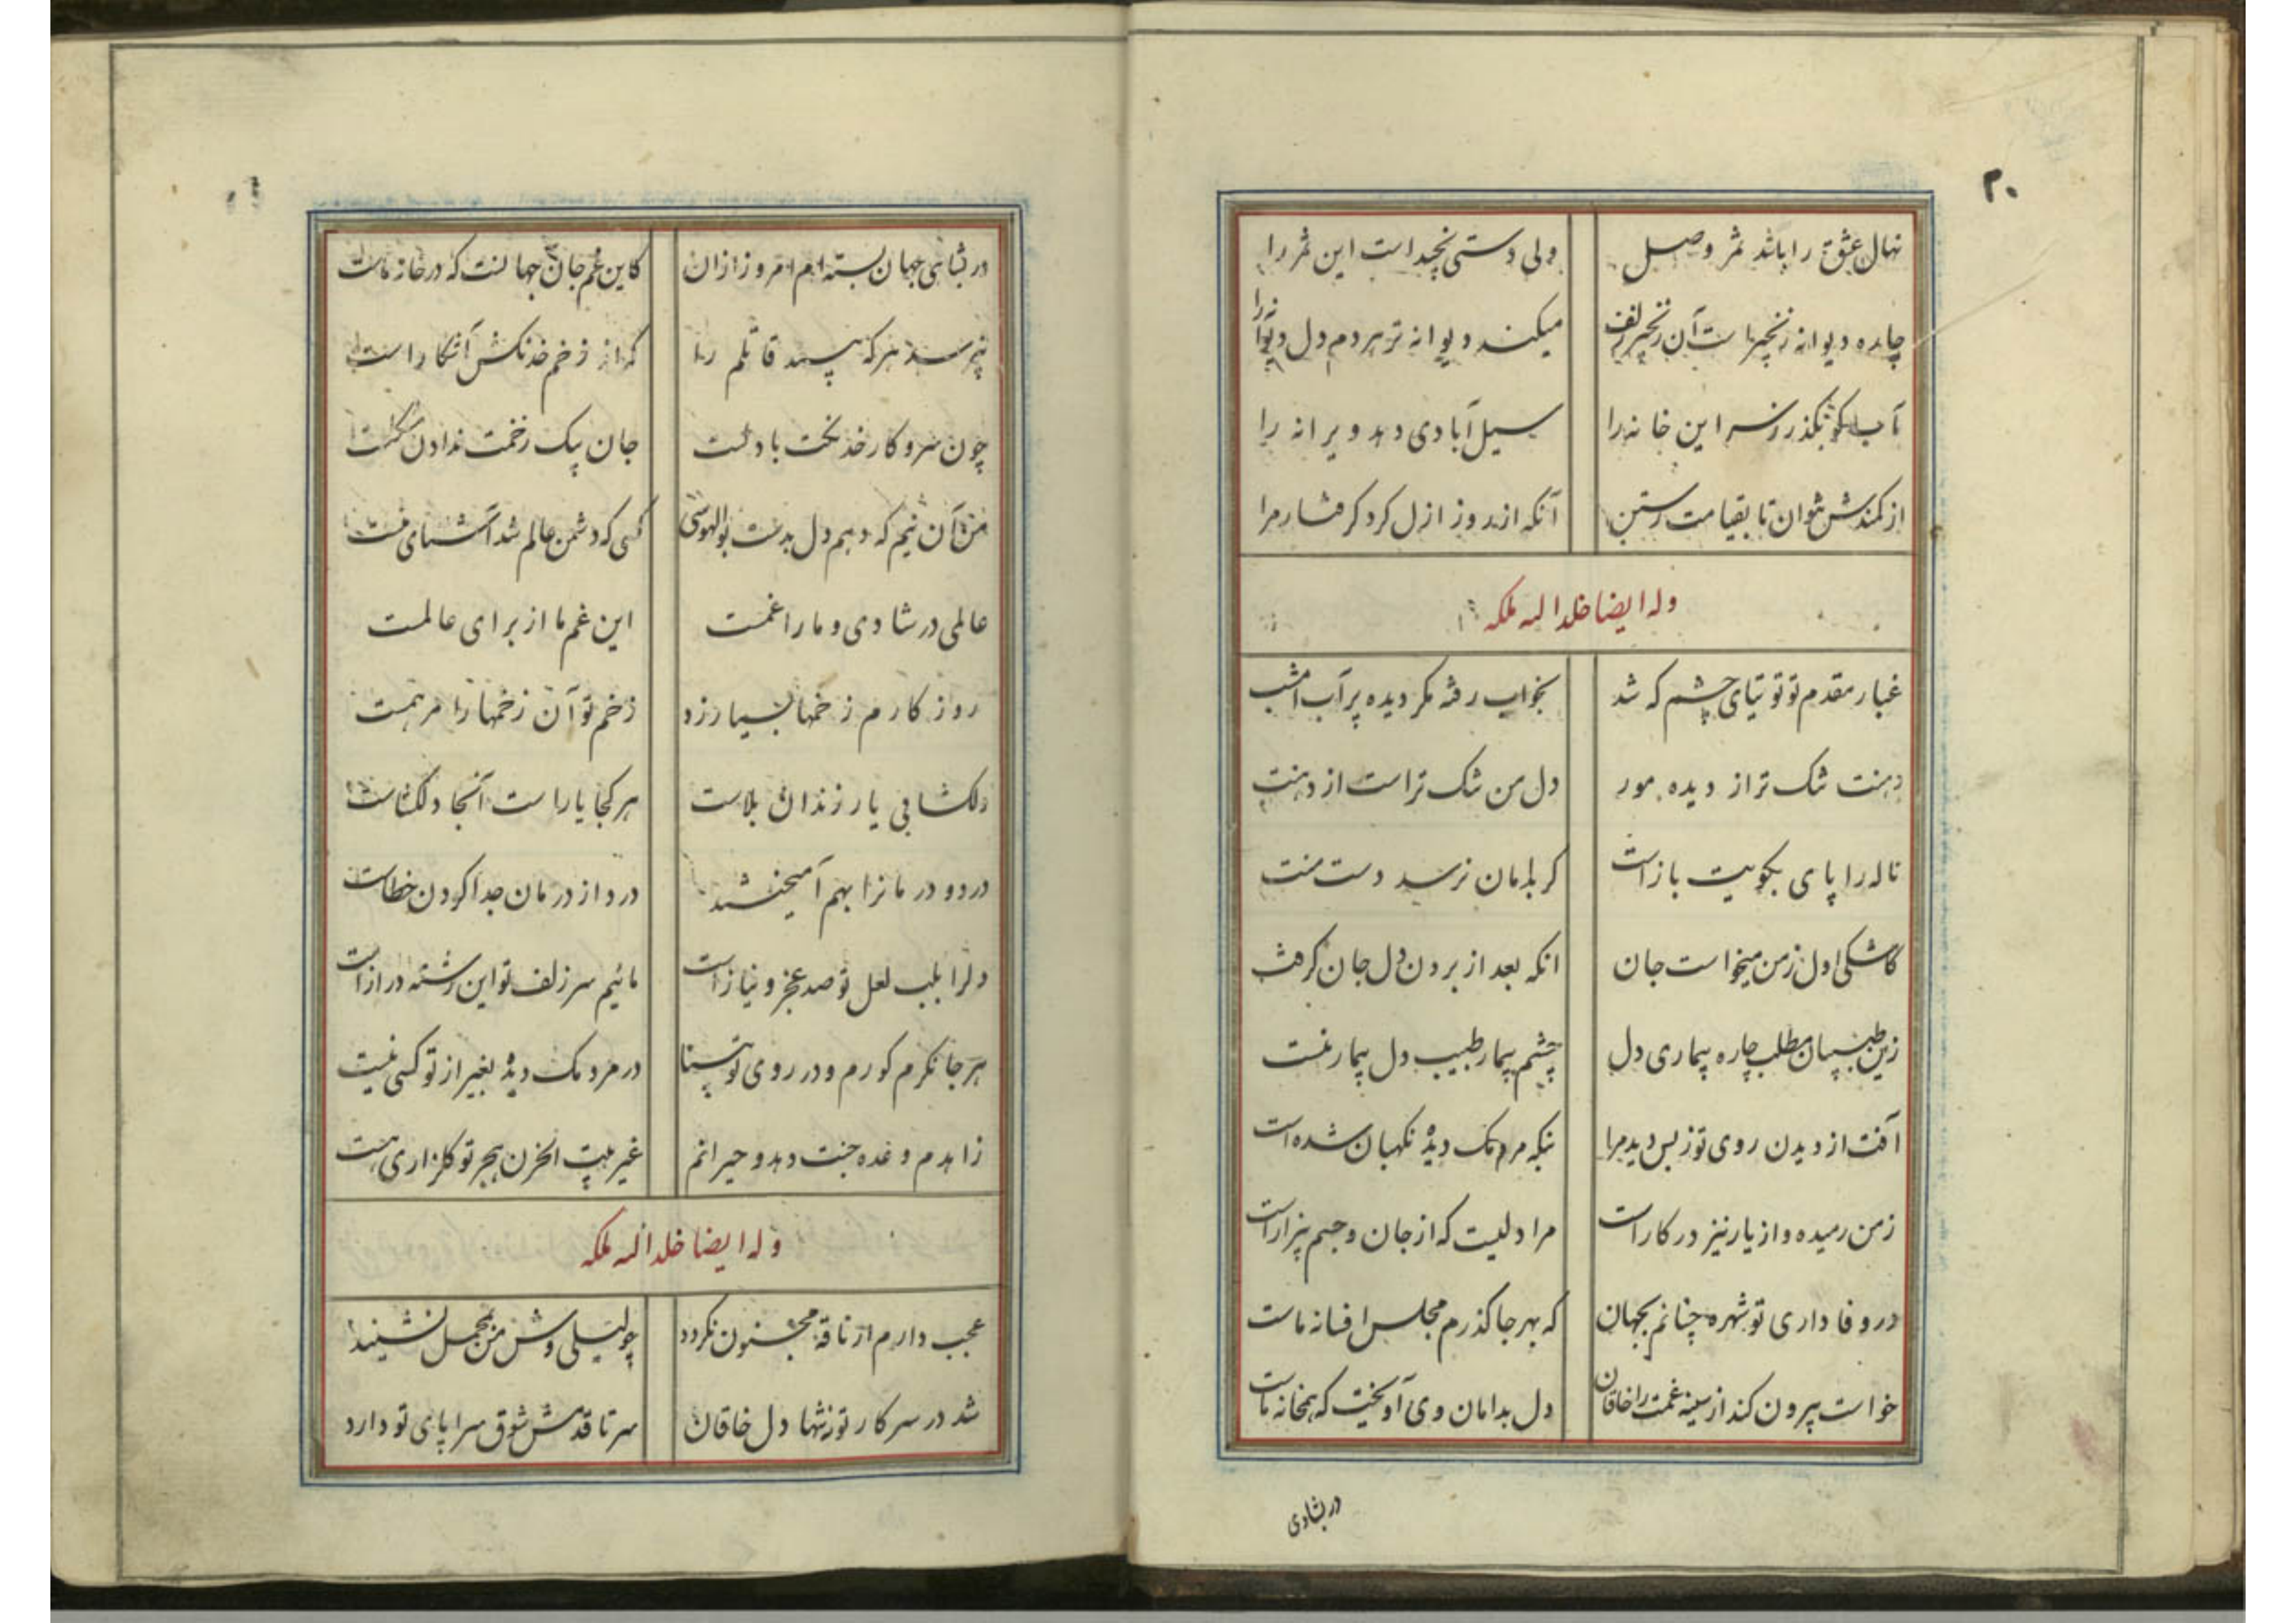 ۲۰
نهال عشق را باشد ثمر وصل ولی دستی نچیداست این ثمر را
چاره دیوانه زنجیر است آن زنجیر زلف میکند دیوانه تر هر دم دل دیوانه را
بگذر ز سر این خانه را سیل آبادی دهد ویرانه را
از کمندش نتوان تا بقیامت رستن آنکه از روز ازل کرد گرفتار مرا
وله ایضا خلد الله ملکه
غبار مقدم تو توتیای چشم که شد بخواب رفته مگر دیده پرآب امشب
دهنت تنک تر از دیده مور دل من تنک تر است از دهنت
ناله را پای بکویت باز است گر بدامان نرسد دست منت
کاشکی اول ز من میخواست جان انکه بعد از بردن دل جان گرفت
زین طبیبان مطلب چاره بیماری دل چشم بیمار طبیب دل بیمار منست
آفت از دیدن روی تو ز بس دید مرا بنکه مردمک دیدۀ نکهبان شده است
ز من رمیده و از یار نیز در کار است مرا دلیست که از جان و جسم بیزار است
در وفاداری تو شهره چنانم بجهان که بهر جا گذرم مجلس افسانه ماست
خواست بیرون کند از سینه غمت را خاقان دل بدامان وی آویخت که همخانه ماست
در شادی
در شادی جهان بسته ام امروز ازان کاین غم جان جهانست که در خانه ماست
نپرسد هر که بیند قاتلم را که از زخم خدنکش آشکار است
چون سر و کار خدنکت با دلست جان بیک زخمت ندادن مشکلست
من آن نیم که دهم دل بدست بوالهوسی کسی که دشمن عالم شد آشنای منست
عالمی در شادی و ما را غمست این غم ما از برای عالمست
روز کارم زخمها بسیار زد زخم تو آن زخمها را مرهمست
دلکشا بی یار زندان بلاست هر کجا یار است آنجا دلکشاست
درد و درمانرا بهم آمیختند درد از درمان جدا کردن خطاست
دلرا بلب لعل تو صد عجز و نیاز است مائیم سر زلف تو این رشته دراز است
هر جا نکرم کورم و در روی تو بینا در مردمک دیدۀ بغیر از تو کسی نیست
زاهدم وعده جنت دهد و حیرانم غیر بیت الحزن هجر تو گلزاری هست
وله ایضا خلد الله ملکه
عجب دارم از ناقه مجنون نکردد چو لیلی وش من بمحمل نشیند
شد در سر کار تو نه تنها دل خاقان سر تا قدمش شوق سراپای تو دارد